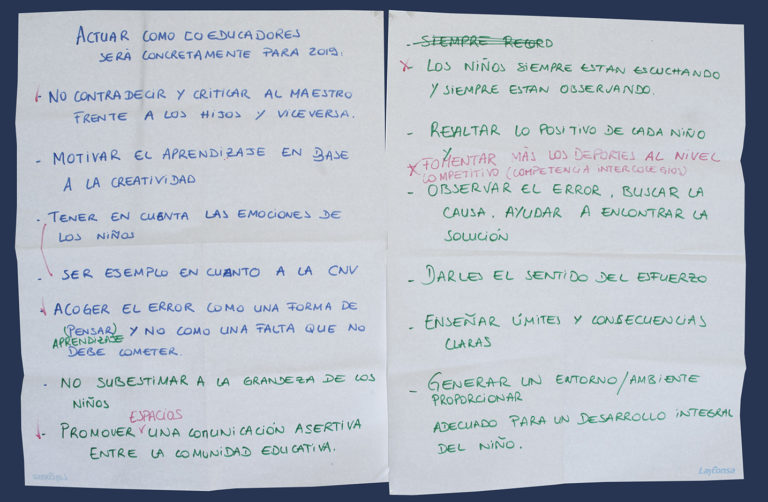 ACTUAR COMO COEDUCADORES
SERÁ CONCRETAMENTE PARA 2019:
- NO CONTRADECIR Y CRITICAR AL MAESTRO
FRENTE A LOS HIJOS Y VICEVERSA.
- MOTIVAR EL APRENDIZAJE EN BASE
A LA CREATIVIDAD
- TENER EN CUENTA LAS EMOCIONES DE
LOS NIÑOS
- SER EJEMPLO EN CUANTO A LA CNV
ACOGER EL ERROR COMO UNA FORMA DE
(PENSAR) Y NO COMO UNA FALTA QUE NO
APRENDIZAJE
DEBE COMETER.
- NO SUBESTIMAR A LA GRANDEZA DE LOS
NIÑOS
ESPACIOS
- PROMOVER UNA COMUNICACIÓN ASERTIVA
ENTRE LA COMUNIDAD EDUCATIVA.
- SIEMPRE RECORD
LOS NIÑOS SIEMPRE ESTAN ESCUCHANDO
Y SIEMPRE ESTAN OBSERVANDO.
- RESALTAR LO POSITIVO DE CADA NIÑO
Y
FOMENTAR MÁS LOS DEPORTES AL NIVEL
COMPETITIVO (COMPETENCIA INTERCOLEGIOS)
- OBSERVAR EL ERROR, BUSCAR LA
CAUSA, AYUDAR A ENCONTRAR LA
SOLUCIÓN
- DARLES EL SENTIDO DEL ESFUERZO
- ENSEÑAR LÍMITES Y CONSECUENCIAS
CLARAS
- GENERAR UN ENTORNO/AMBIENTE
PROPORCIONAR
ADECUADO PARA UN DESARROLLO INTEGRAL
DEL NIÑO.
Layconsa